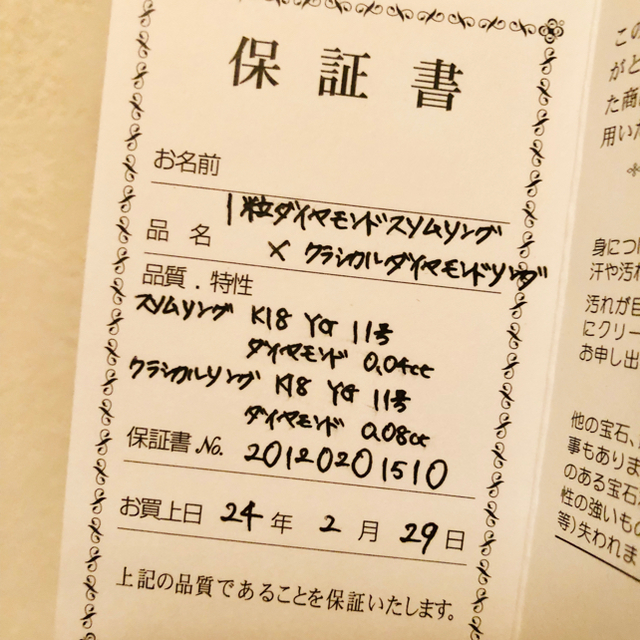 保証書
お名前
1粒ダイヤモンドスリムリング
品 名 × クラシカルダイヤモンドリング
品質.特性
スリムリング K18 YG 11号
ダイヤモンド 0.04ct
クラシカルリング K18 YG 11号
ダイヤモンド 0.08ct
保証書No. 20120201510
お買上日 24 年 2 月 29 日
上記の品質であることを保証いたします。
この
がと
た商
用いた
身につけ
汗や汚れ
汚れが目
にクリー
お申し出
他の宝石、
事もありま
のある宝石
性の強いもの
等)失われま